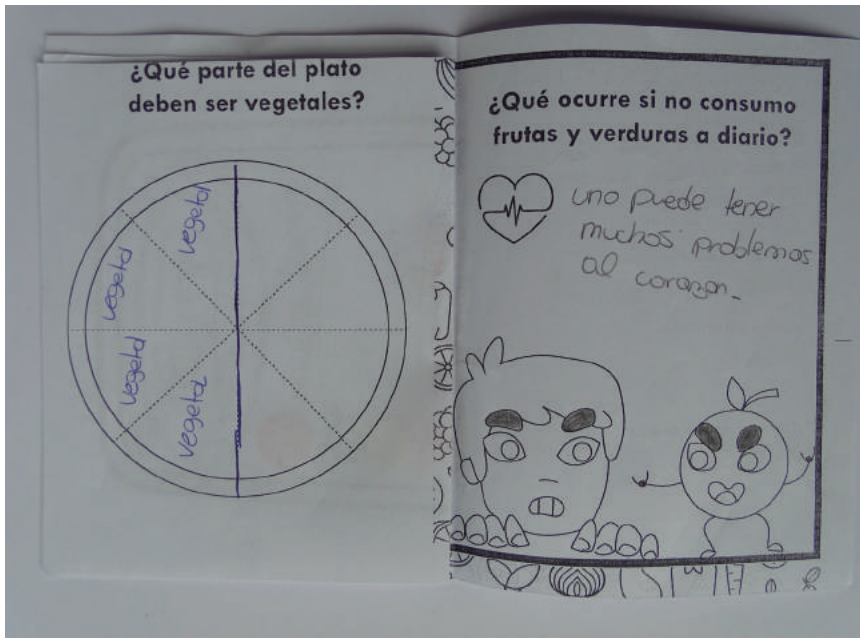 ¿Qué parte del plato
deben ser vegetales?
vegetal
vegetal
vegetal
vegetal
¿Qué ocurre si no consumo
frutas y verduras a diario?
uno puede tener
muchos problemas
al corazon.